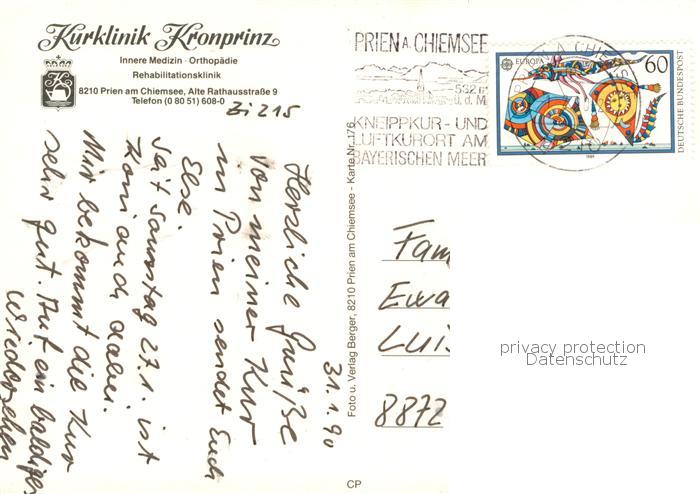 Kurklinik Kronprinz
Innere Medizin · Orthopädie
Rehabilitationsklinik
8210 Prien am Chiemsee, Alte Rathausstraße 9
Telefon (0 80 51) 608-0
Zi 215
31.1.90
Herzliche Grüße
von meiner Kur
in Prien sendet Euch
Else.
Seit Samstag 27.1. ist
auch
Mir bekommt die Kur
sehr gut. Auf ein baldiges
Wiedersehen
Foto u. Verlag Berger, 8210 Prien am Chiemsee - Karte Nr. 176
CP
PRIEN A. CHIEMSEE
532 m
ü. d. M.
KNEIPPKUR- UND
LUFTKURORT AM
BAYERISCHEN MEER
EUROPA
60
DEUTSCHE BUNDESPOST
1989
Fam
Ewa
Luis
8872
privacy protection
Datenschutz